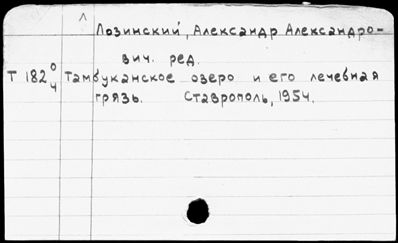 Л
Лозинский, Александр Александро-
вич. ред.
Т 182 0/4 Тамбуканское озеро и его лечебная
грязь. Ставрополь, 1954.